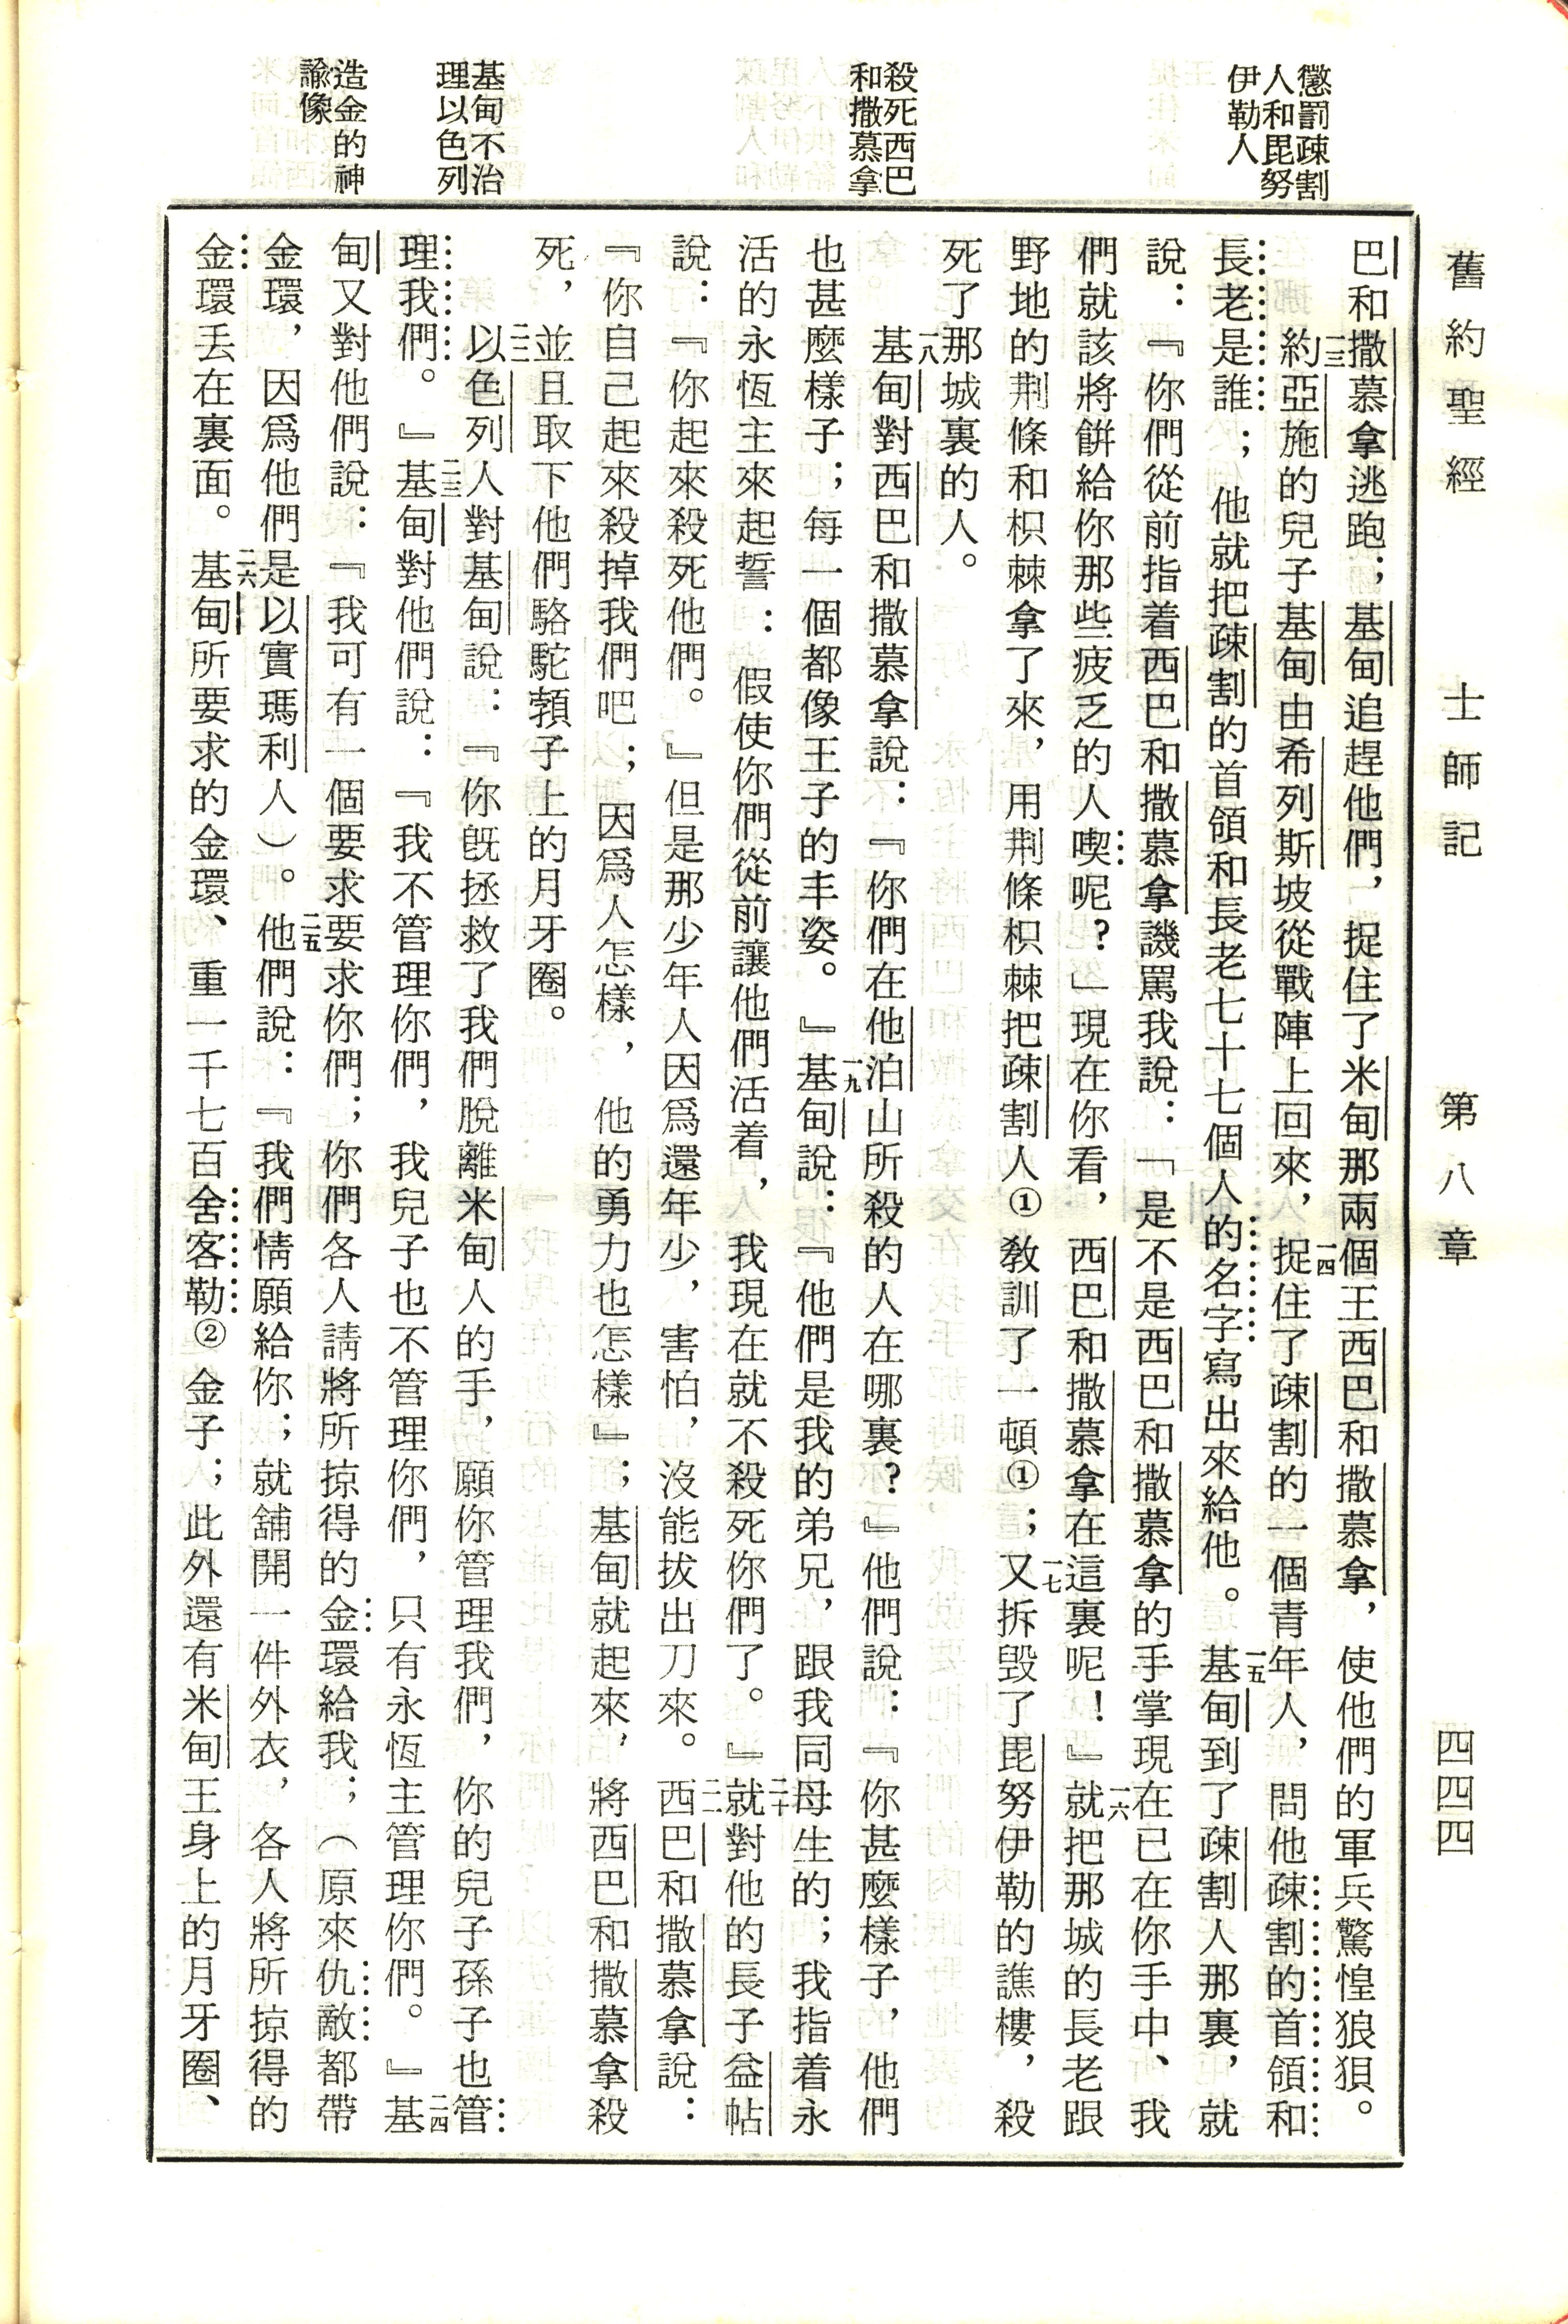 舊約聖經　士師記　第八章　四四四
懲罰疎割
人和毘努
伊勒人
殺死西巴
和撒慕拿
基甸不治
理以色列
造金的神
諭像
巴和撒慕拿逃跑；基甸追趕他們，捉住了米甸那兩個王西巴和撒慕拿，使他們的軍兵驚惶狼狽。
一三約亞施的兒子基甸由希列斯坡從戰陣上回來，一四捉住了疎割的一個青年人，問他疎割的首領和
長老是誰；他就把疎割的首領和長老七十七個人的名字寫出來給他。一五基甸到了疎割人那裏，就
說：『你們從前指着西巴和撒慕拿譏罵我說：「是不是西巴和撒慕拿的手掌現在已在你手中、我
們就該將餅給你那些疲乏的人喫呢？」現在你看，西巴和撒慕拿在這裏呢！』一六就把那城的長老跟
野地的荆條和枳棘拿了來，用荆條枳棘把疎割人①教訓了一頓①；一七又拆毀了毘努伊勒的譙樓，殺
死了那城裏的人。
一八基甸對西巴和撒慕拿說：『你們在他泊山所殺的人在哪裏？』他們說：『你甚麼樣子，他們
也甚麼樣子；每一個都像王子的丰姿。』一九基甸說：『他們是我的弟兄，跟我同母生的；我指着永
活的永恆主來起誓：假使你們從前讓他們活着，我現在就不殺死你們了。』二十就對他的長子益帖
說：『你起來殺死他們。』但是那少年人因爲還年少，害怕，沒能拔出刀來。二一西巴和撒慕拿說：
『你自己起來殺掉我們吧；因爲人怎樣，他的勇力也怎樣』；基甸就起來，將西巴和撒慕拿殺
死，並且取下他們駱駝顖子上的月牙圈。
二二以色列人對基甸說：『你旣拯救了我們脫離米甸人的手，願你管理我們，你的兒子孫子也管
理我們。』二三基甸對他們說：『我不管理你們，我兒子也不管理你們，只有永恆主管理你們。』二四基
甸又對他們說：『我可有一個要求要求你們；你們各人請將所掠得的金環給我；（原來仇敵都帶
金環，因爲他們是以實瑪利人）。二五他們說：『我們情願給你；就舖開一件外衣，各人將所掠得的
金環丢在裏面。二六基甸所要求的金環、重一千七百舍客勒②金子；此外還有米甸王身上的月牙圈、